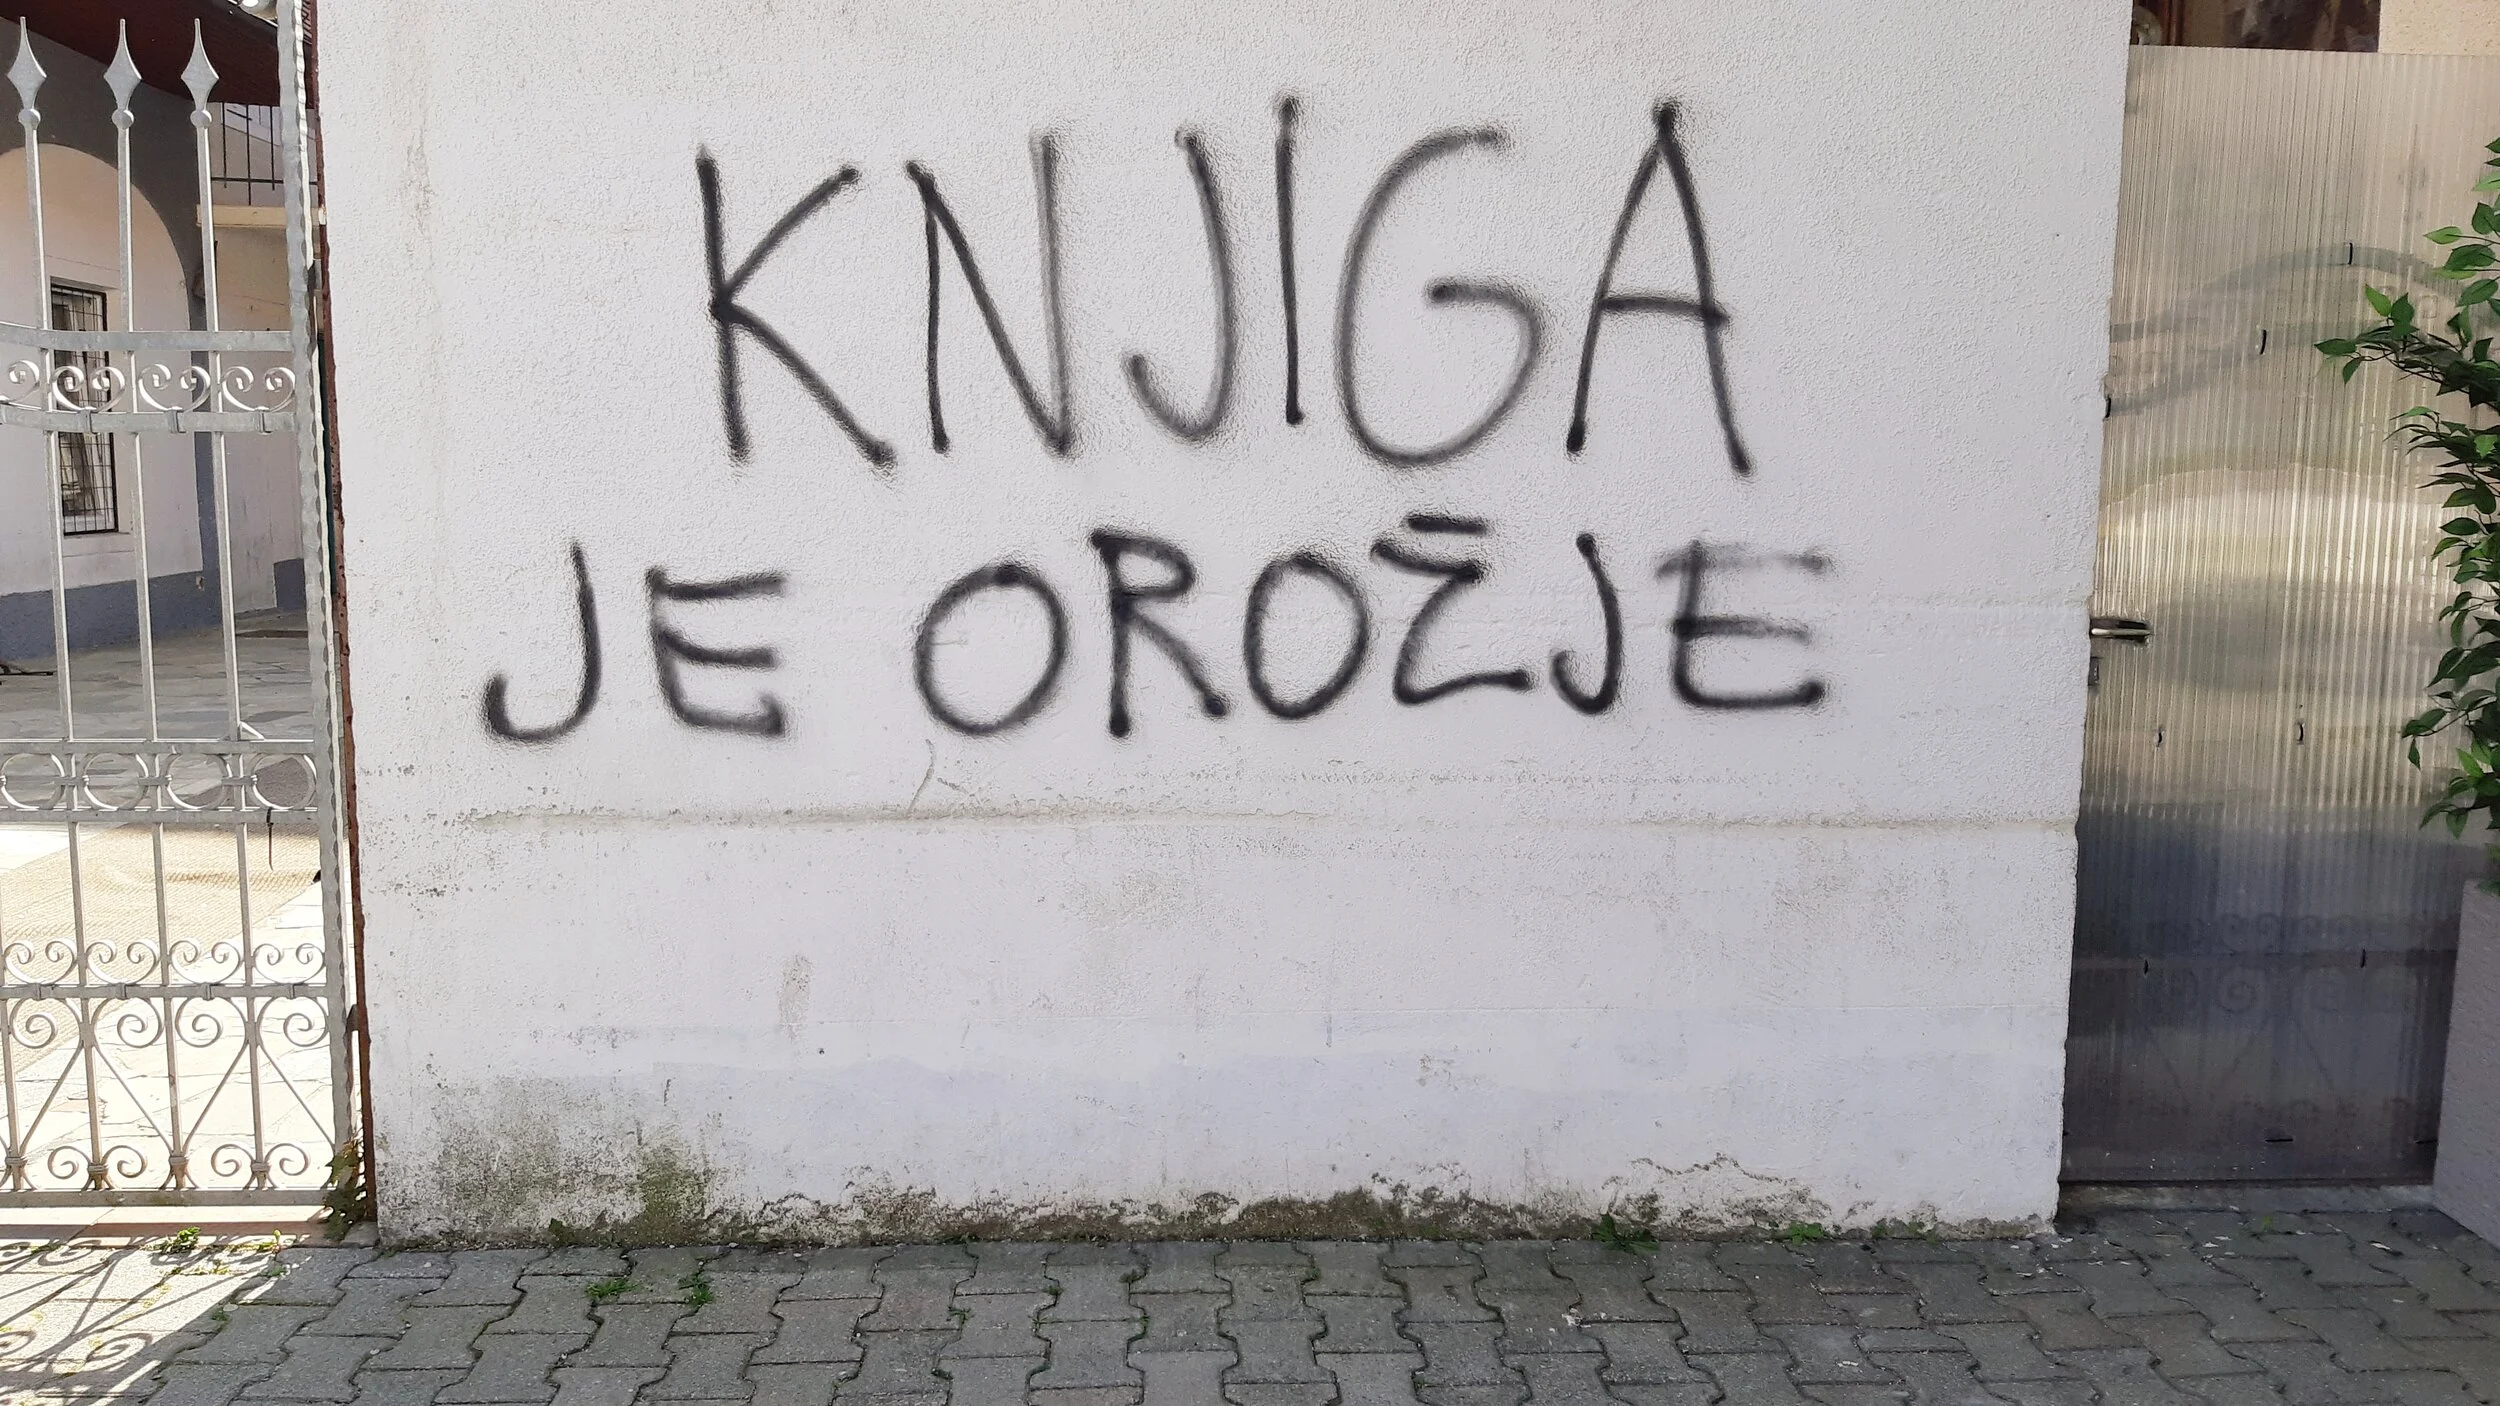 KNJIGA
JE OROŽJE